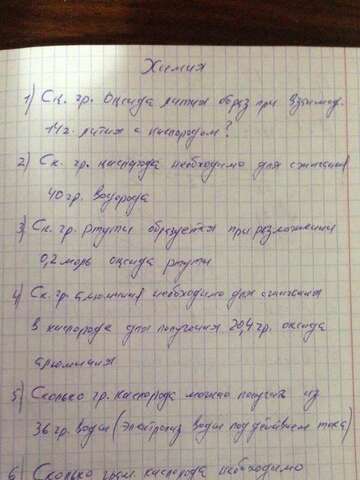 Химия
1) Ск. гр. оксида лития образ при взаимод.
14 г. лития с кислородом?
2) Ск. гр. кислорода необходимо для сжигания
40 гр. водорода
3) Ск. гр. ртути образуется при разложении
0,2 моль оксида ртути
4) Ск. гр алюминия необходимо для сжигания
в кислороде для получения 20,4 гр. оксида
алюминия
5) Сколько гр. кислорода можно получить из
36 гр. воды (электролиз воды под действием тока)
6) Сколько грам. кислорода необходимо